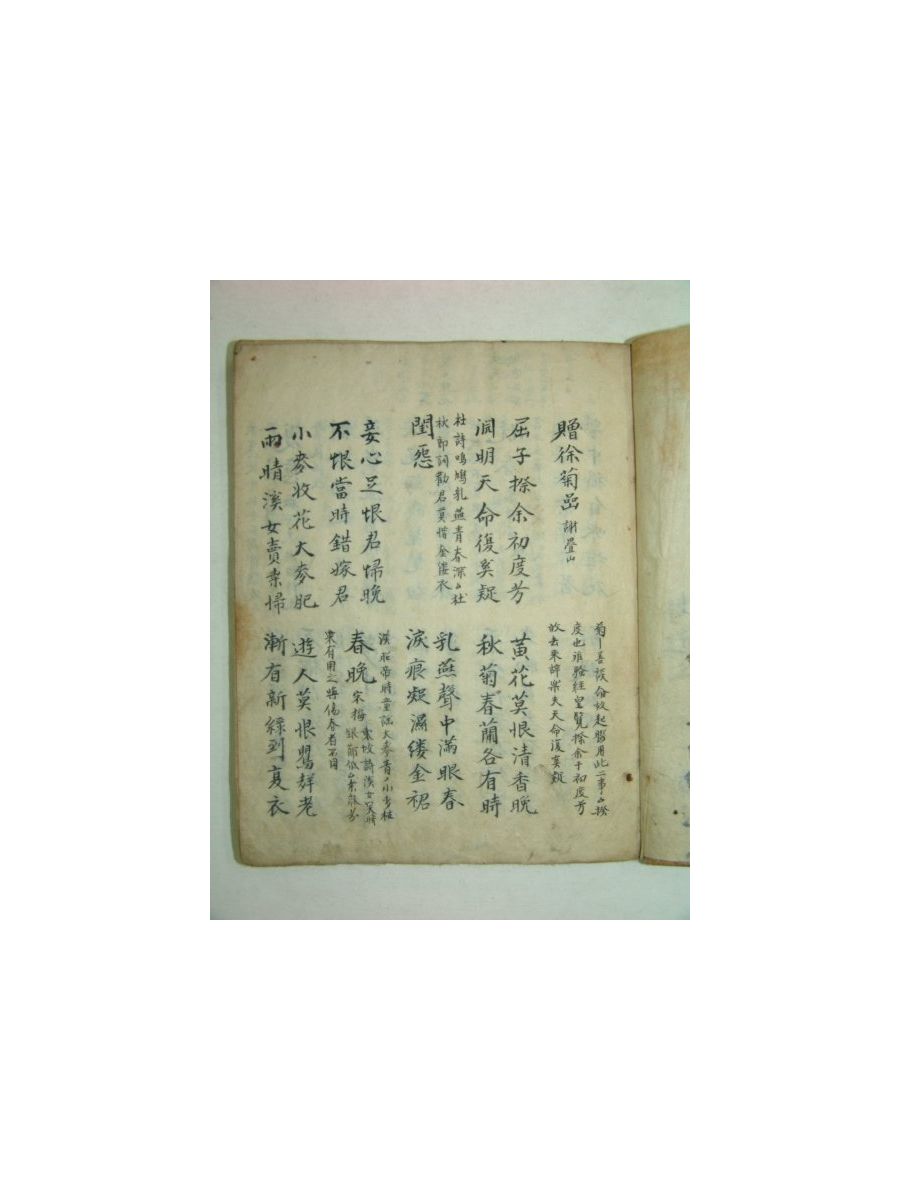 贈徐菊嵒 謝疊山
菊丨善談命故起聯用此二事
度也離騷經皇覽揆余于初度兮
故去來辭樂夫天命復奚疑
屈子揆余初度芳 黃花莫恨清香晚
淵明天命復奚疑 秋菊春蘭各有時
杜詩鳴鳩乳燕青春深 杜
秋郎詞勸君莫惜金縷衣
閨怨
乳燕聲中滿眼春
淚痕凝濕縷金裙
妾心足恨君歸晚
不恨當時錯嫁君
漢 帝時童謠大麥青小麥枯
春晚 宋梅
東坡詩溪女笑時銀櫛低
小麥收花大麥肥 遊人莫恨鶯群老
雨晴溪女賣桑歸 漸有新綠到夏衣